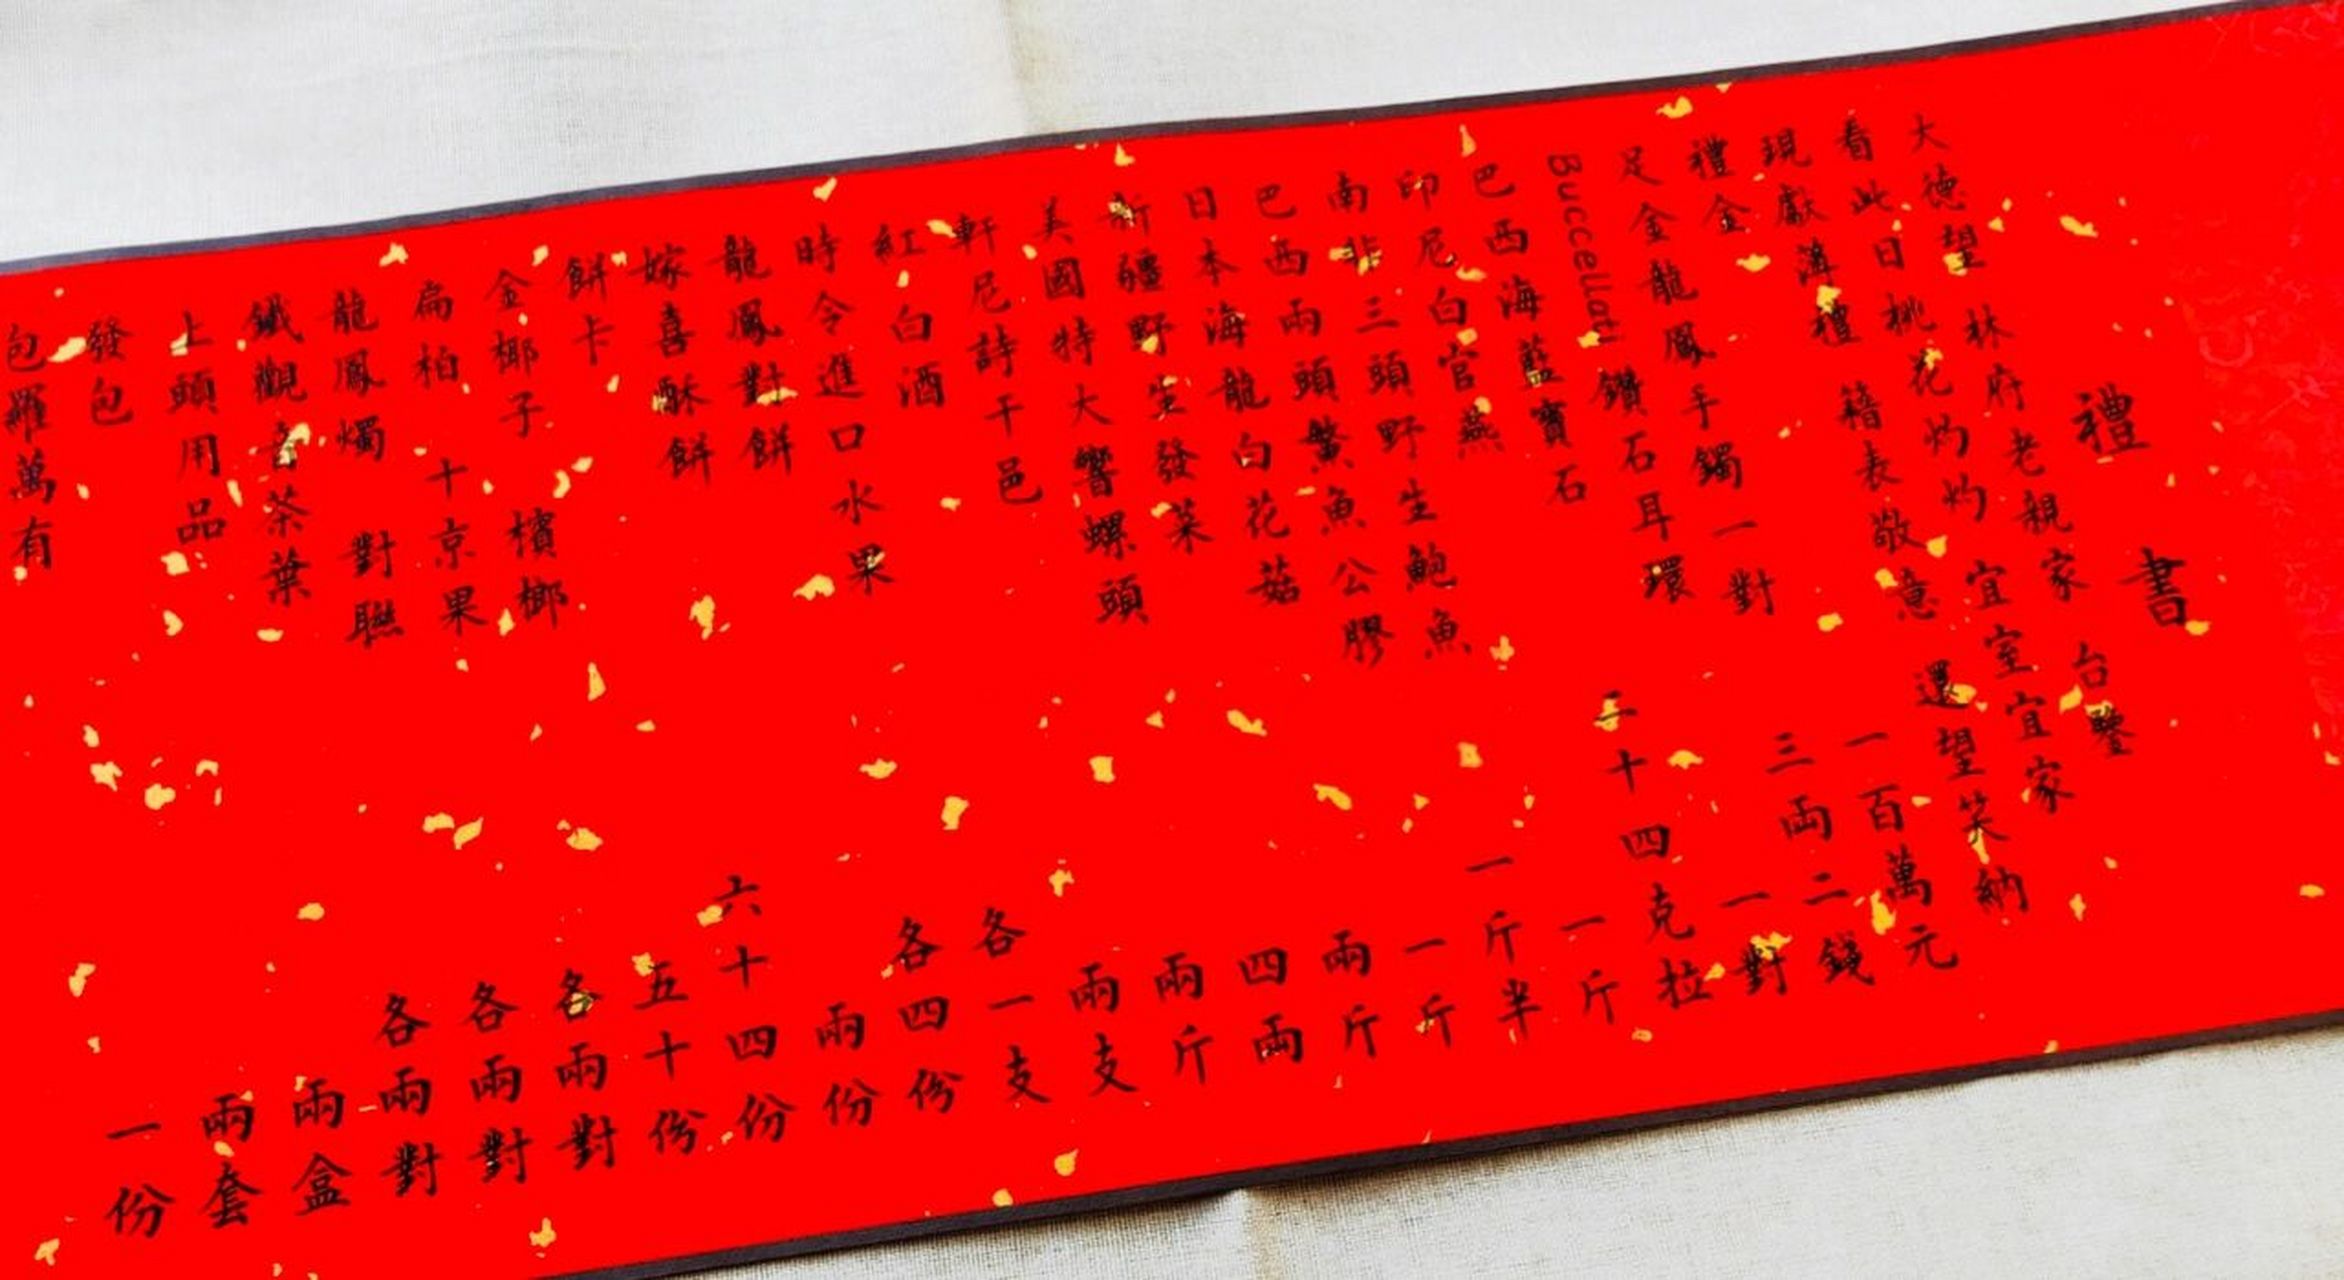 禮書
大德望 林府老親家 台鑒
看此日桃花灼灼 宜室宜家
現獻薄禮 籍表敬意 還望笑納
禮金 一百萬元
足金龍鳳手鐲一對 三両二錢
Buccellati 鑽石耳環 一對
巴西海藍寶石 二十四克拉
印尼白官燕 一斤
南非三頭野生鮑魚 一斤半
巴西兩頭鰵魚公膠 一斤
日本海龍白花菇 兩斤
新疆野生發菜 四両
美國特大響螺頭 兩斤
軒尼詩干邑 兩支
紅白酒 各一支
時令進口水果 各四份
龍鳳對餅 兩份
嫁喜酥餅 六十四份
餅卡 五十份
金椰子 檳榔 各兩對
扁柏 十京果 各兩對
龍鳳燭 對聯 各兩對
鐵觀音茶葉 兩盒
上頭用品 兩套
發包 一份
包羅萬有